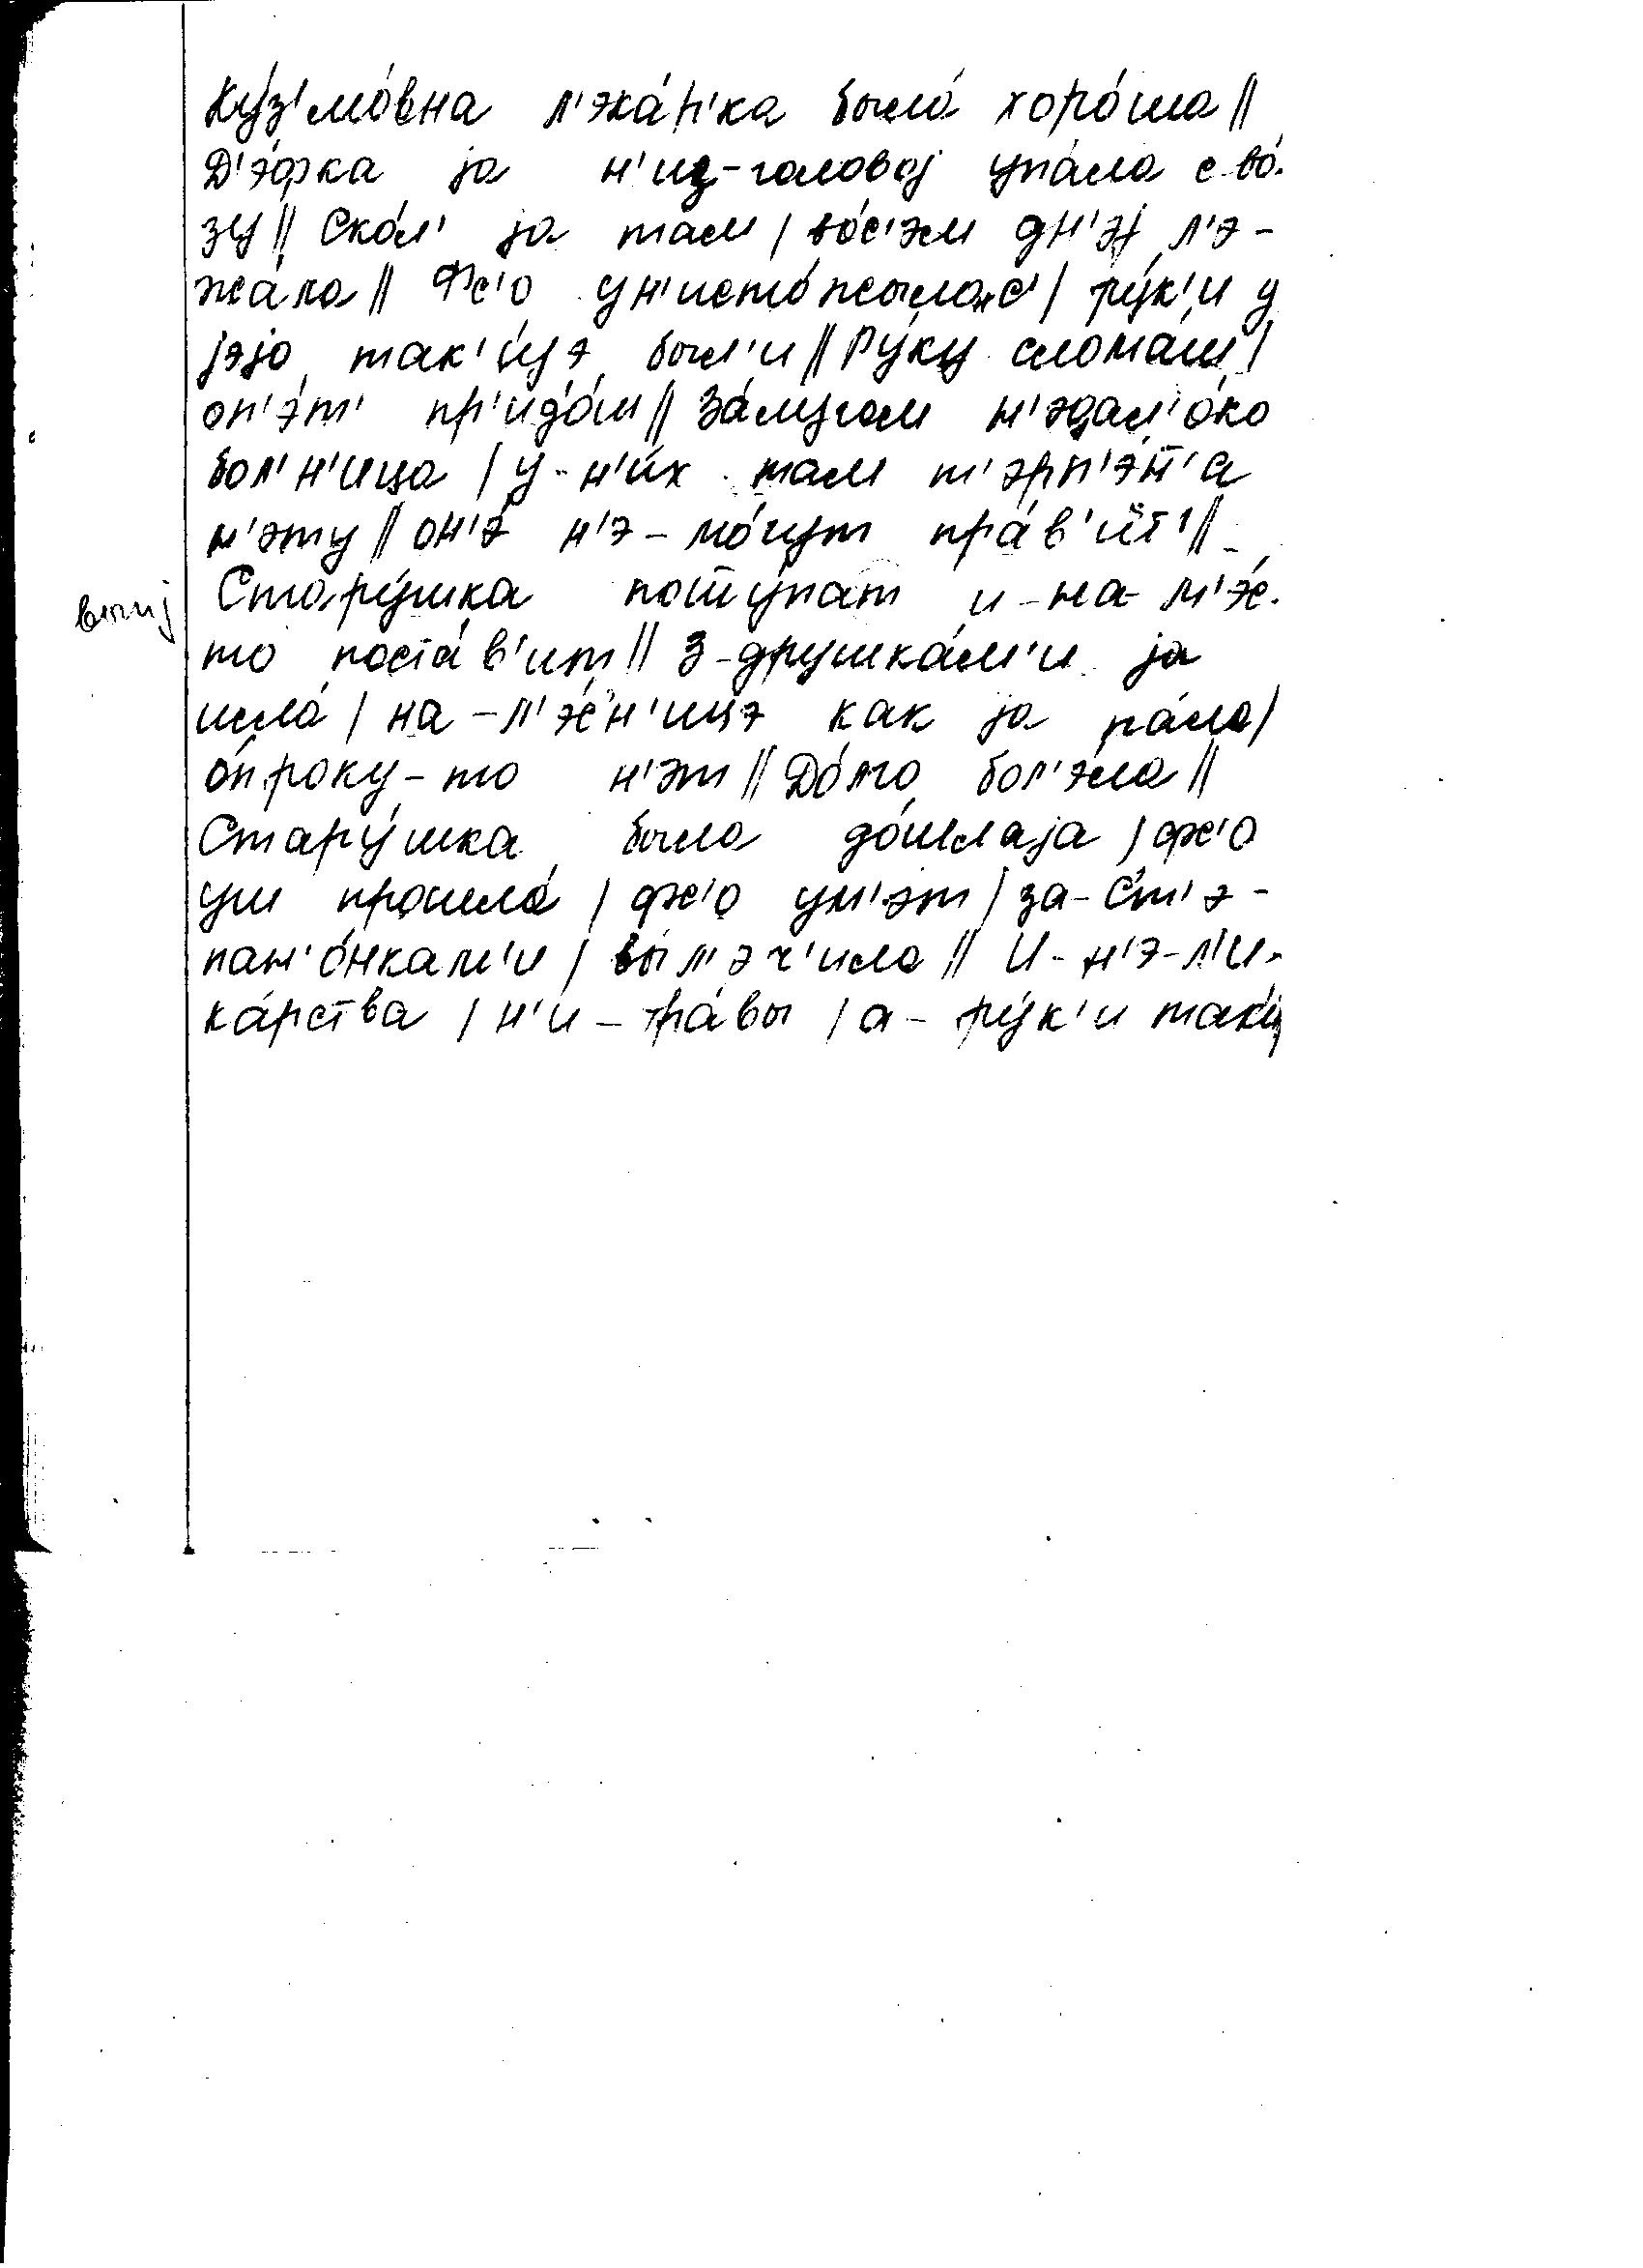 Ку́з'мо́вна л'эка́р'ка была́ хоро́ша //
Д'э́фка ја н'из-головој упа́ла с во́-
зу // Ско́л' ја там / во́с'эм дн'эј л'э-
жа́ла // Фс'о ун'исто́жылос' / ру́к'и у
јэјо так'и́јэ был'и // Ру́ку слома́ш /
оп'э́т' пр'идо́ш // За́мугом н'эдал'о́ко
бол'н'ица / у-н'и́х там т'эрп'э́н'а
н'эту // он'э́ н'э-мо́гут пра́в'ит' //
выиј
Стару́шка пошшу́пат и-на-м'э́с-
то поста́в'ит // З-друшка́м'и ја
шла́ / на-л'э́с'н'ицэ как ја па́ла /
о́проку-то н'эт // До́лго бол'э́ла //
Стару́шка была до́шлаја / фс'о
уш прошла́ / фс'о ум'эт / за-С'т'э-
пан'о́нкам'и / вы́л'эч'ила // И-н'э-л'и-
ка́рства / н'и-тра́вы / а-ру́к'и так'и́